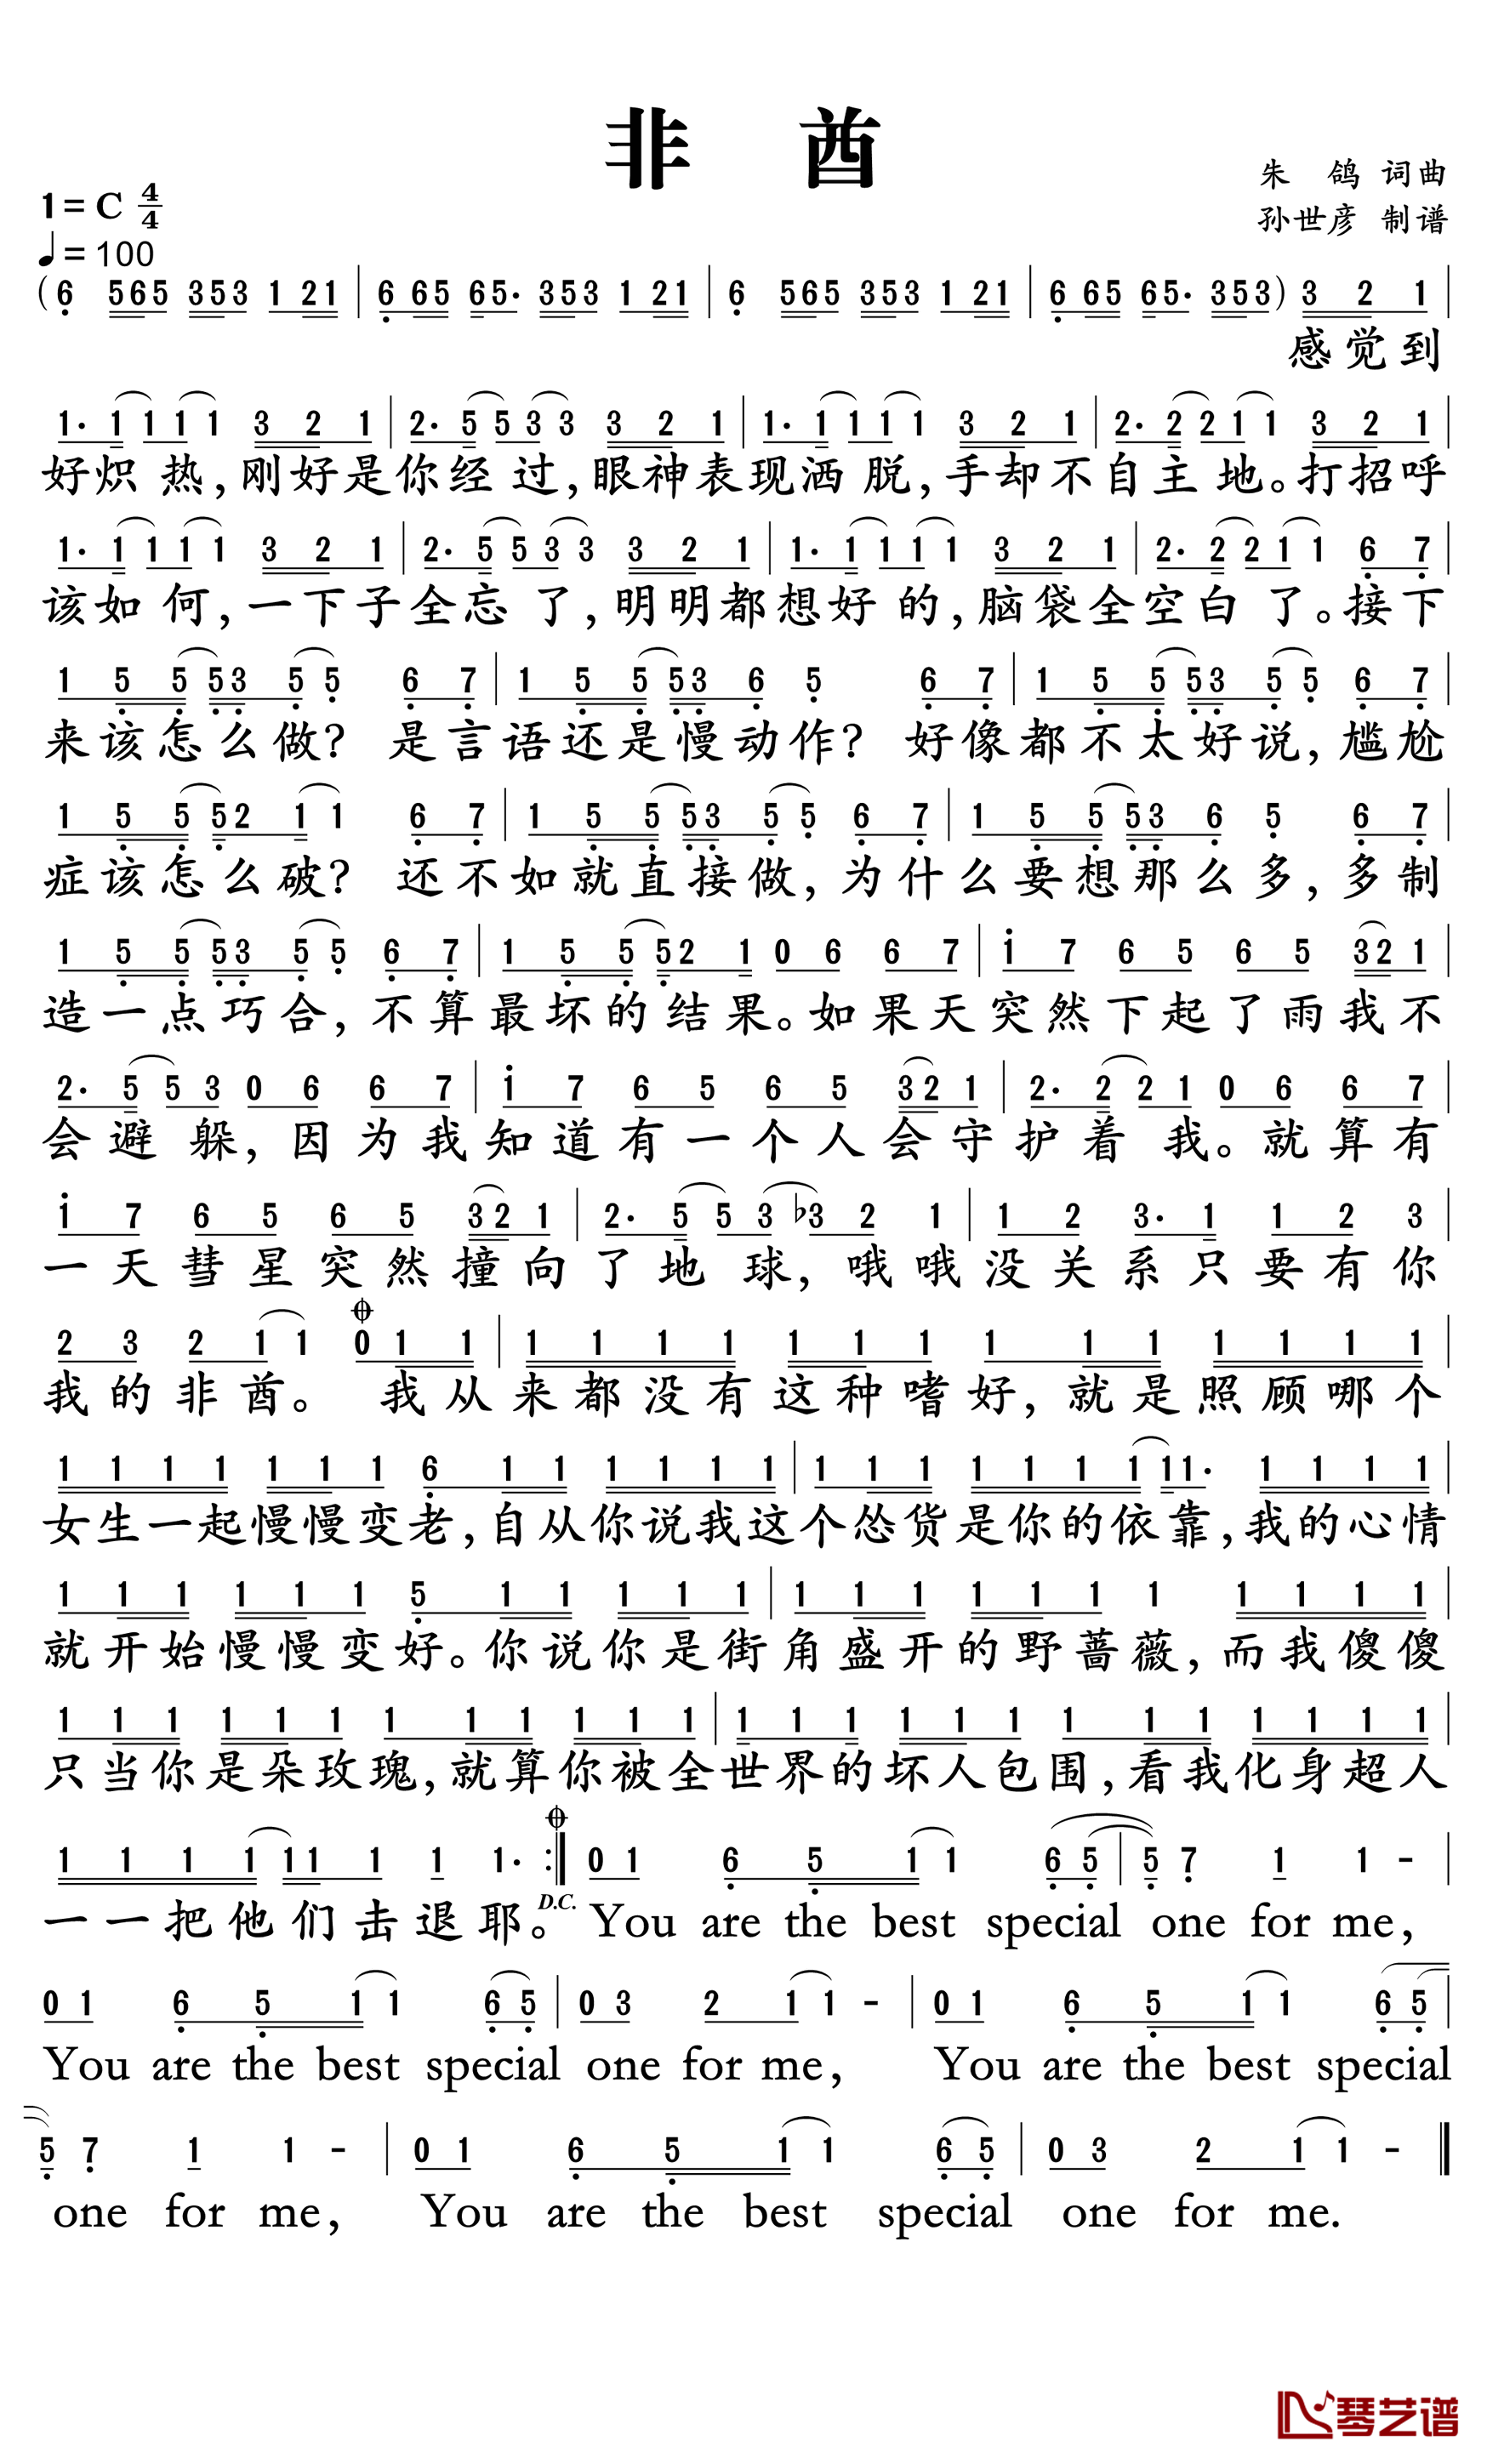 非 酋
朱 鸽 词曲
孙世彦 制谱
1=C 4/4
♩=100
(6 565 353 1 21 | 6 65 65· 353 1 21 | 6 565 353 1 21 | 6 65 65· 353) 3 2 1 |
感觉到
1· 1 1 1 1 3 2 1 | 2· 5 5 3 3 3 2 1 | 1· 1 1 1 1 3 2 1 | 2· 2 2 1 1 3 2 1 |
好炽热,刚好是你经过,眼神表现洒脱,手却不自主地。打招呼
1· 1 1 1 1 3 2 1 | 2· 5 5 3 3 3 2 1 | 1· 1 1 1 1 3 2 1 | 2· 2 2 1 1 6 7 |
该如何,一下子全忘了,明明都想好的,脑袋全空白了。接下
1 5 5 5 3 5 5 6 7 | 1 5 5 5 3 6 5 6 7 | 1 5 5 5 3 5 5 6 7 |
来该怎么做? 是言语还是慢动作? 好像都不太好说,尴尬
1 5 5 5 2 1 1 6 7 | 1 5 5 5 3 5 5 6 7 | 1 5 5 5 3 6 5 6 7 |
症该怎么破? 还不如就直接做,为什么要想那么多,多制
1 5 5 5 3 5 5 6 7 | 1 5 5 5 2 1 0 6 6 7 | 1 7 6 5 6 5 3 2 1 |
造一点巧合,不算最坏的结果。如果天突然下起了雨我不
2· 5 5 3 0 6 6 7 | 1 7 6 5 6 5 3 2 1 | 2· 2 2 1 0 6 6 7 |
会避躲,因为我知道有一个人会守护着我。就算有
1 7 6 5 6 5 3 2 1 | 2· 5 5 3 ♭3 2 1 | 1 2 3· 1 1 2 3 |
一天彗星突然撞向了地球,哦哦没关系只要有你
2 3 2 1 1 0 1 1 | 1 1 1 1 1 1 1 1 1 1 1 1 1 1 |
我的非酋。 我从来都没有这种嗜好,就是照顾哪个
1 1 1 1 1 1 1 6 1 1 1 1 1 1 | 1 1 1 1 1 1 1 1 1· 1 1 1 1 |
女生一起慢慢变老,自从你说我这个怂货是你的依靠,我的心情
1 1 1 1 1 1 5 1 1 1 1 1 | 1 1 1 1 1 1 1 1 1 1 1 |
就开始慢慢变好。你说你是街角盛开的野蔷薇,而我傻傻
1 1 1 1 1 1 1 1 1 1 1 1 | 1 1 1 1 1 1 1 1 1 1 1 1 1 |
只当你是朵玫瑰,就算你被全世界的坏人包围,看我化身超人
1 1 1 1 1 1 1 1 1· :| 0 1 6 5 1 1 6 5 | 5 7 1 1 - |
一一把他们击退耶。 D.C. You are the best special one for me,
0 1 6 5 1 1 6 5 | 0 3 2 1 1 - | 0 1 6 5 1 1 6 5 |
You are the best special one for me, You are the best special
5 7 1 1 - | 0 1 6 5 1 1 6 5 | 0 3 2 1 1 - ‖
one for me, You are the best special one for me.
琴艺谱